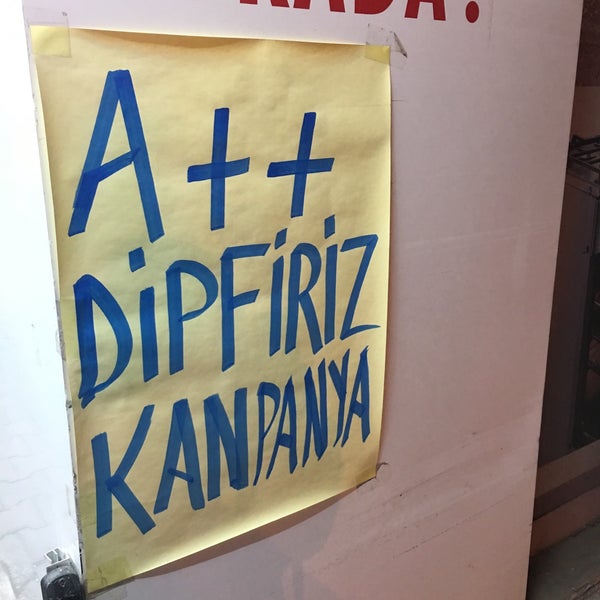 A++
DİPFİRİZ
KANPANYA